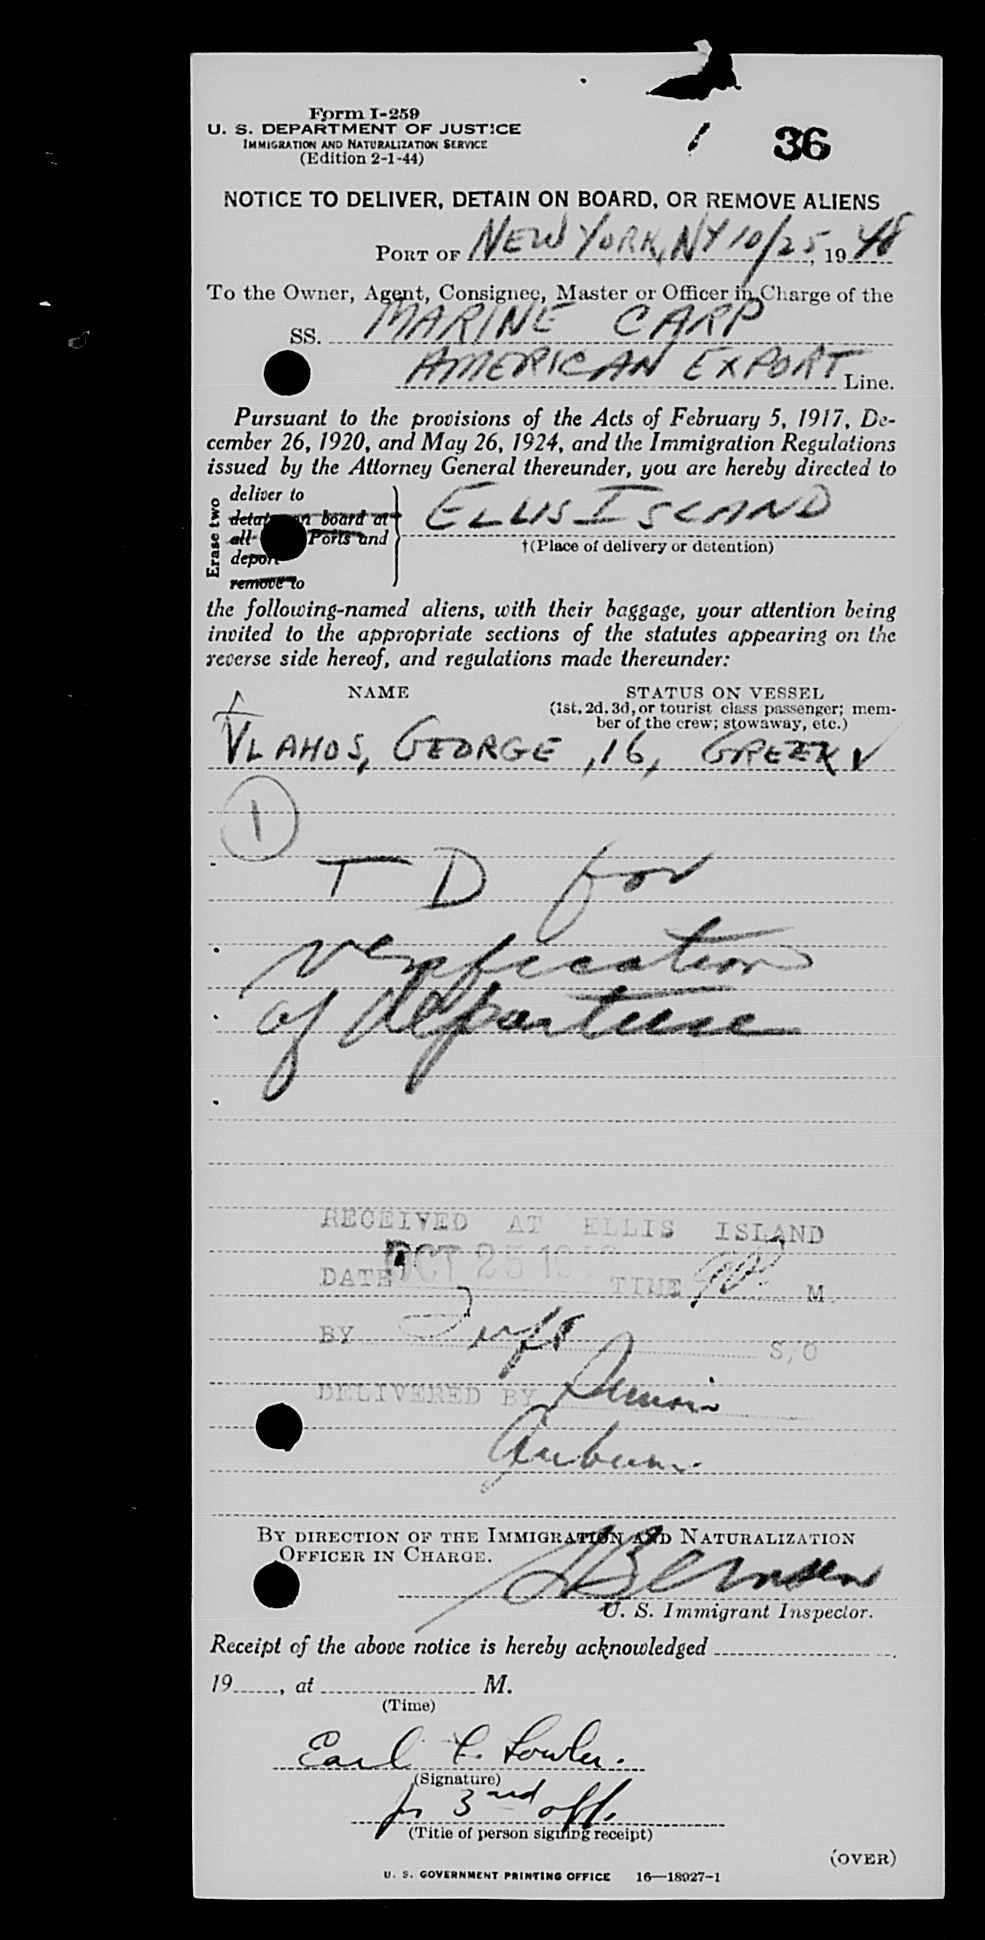 Form I-259
U. S. DEPARTMENT OF JUSTICE
IMMIGRATION AND NATURALIZATION SERVICE
(Edition 2-1-44)
36
NOTICE TO DELIVER, DETAIN ON BOARD, OR REMOVE ALIENS
PORT OF NEW YORK, NY 10/25, 1948
To the Owner, Agent, Consignee, Master or Officer in Charge of the
SS. MARINE CARP
AMERICAN EXPORT Line.
Pursuant to the provisions of the Acts of February 5, 1917, De-
cember 26, 1920, and May 26, 1924, and the Immigration Regulations
issued by the Attorney General thereunder, you are hereby directed to
Erase two
deliver to
detain on board at
all Ports and
deport
remove to
ELLIS ISLAND
†(Place of delivery or detention)
the following-named aliens, with their baggage, your attention being
invited to the appropriate sections of the statutes appearing on the
reverse side hereof, and regulations made thereunder:
NAME
STATUS ON VESSEL
(1st, 2d, 3d, or tourist class passenger; mem-
ber of the crew; stowaway, etc.)
VLAHOS, GEORGE, 16, GREEK
1
T D for
verification
of departure
RECEIVED AT ELLIS ISLAND
DATE OCT 25 TIME M.
BY S/O
DELIVERED BY
BY DIRECTION OF THE IMMIGRATION AND NATURALIZATION
OFFICER IN CHARGE.
U. S. Immigrant Inspector.
Receipt of the above notice is hereby acknowledged
19, at M.
(Time)
Earl
(Signature)
jr 3rd off.
(Title of person signing receipt)
(OVER)
U. S. GOVERNMENT PRINTING OFFICE 16—18927-1